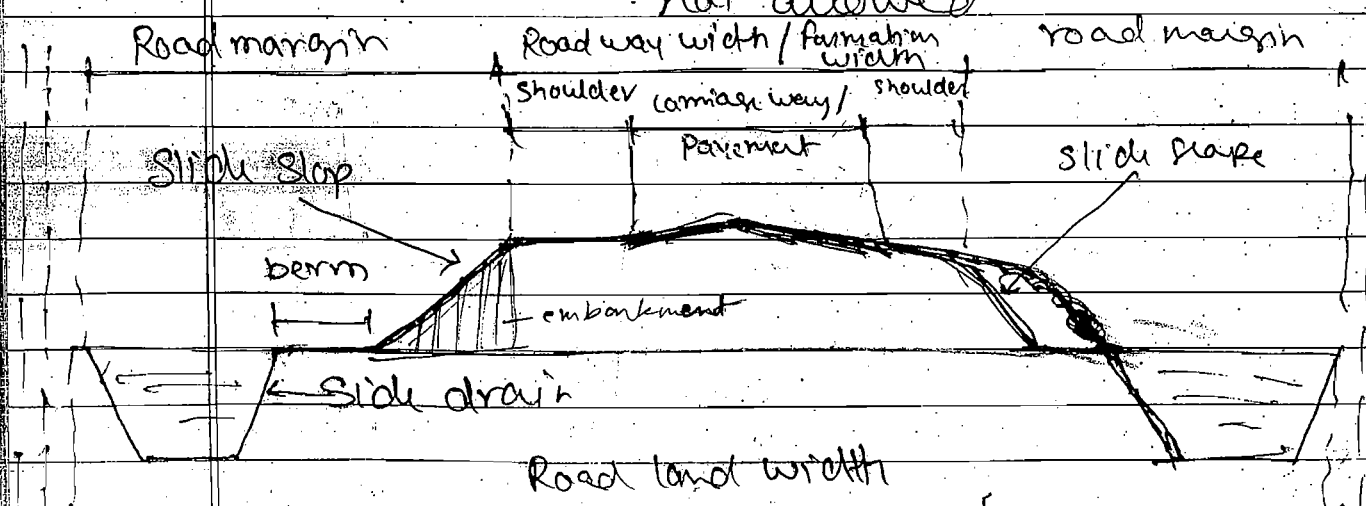 not allowed
Road margin
Road way width / formation width
road margin
shoulder
carriage way / Pavement
shoulder
Slide Slop
Slide Slope
berm
embankment
Side drain
Road land width